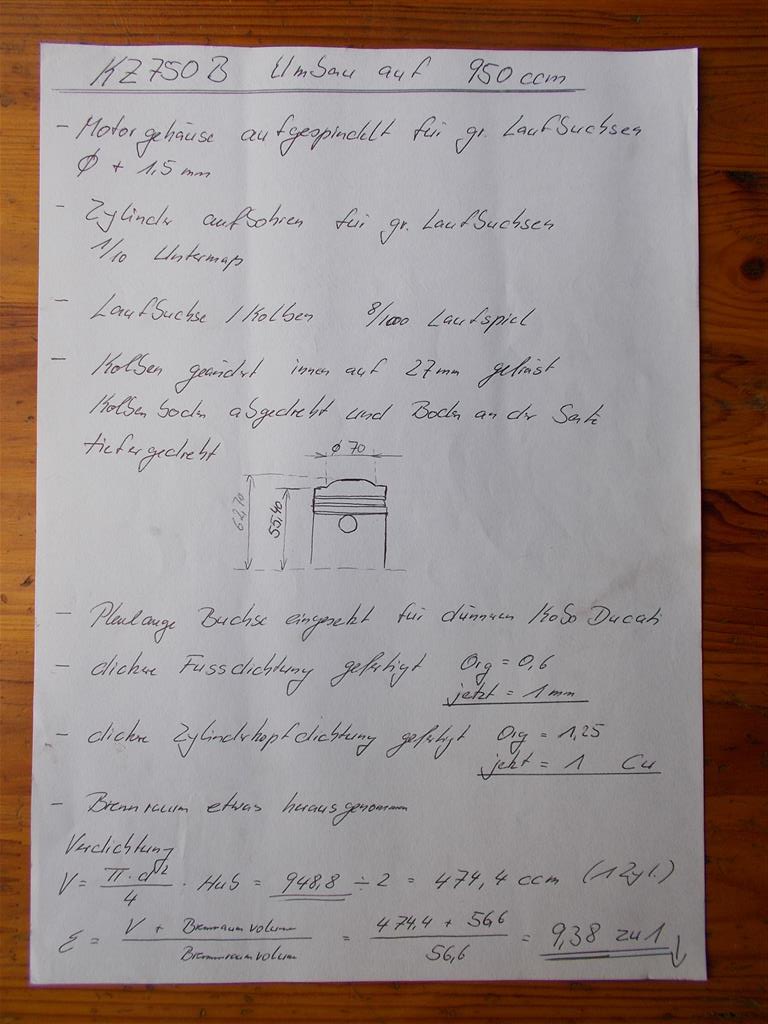 KZ750B Umbau auf 950 ccm
- Motorgehäuse aufgespindelt für gr. Laufbuchsen
Ø + 1,5 mm
- Zylinder aufbohren für gr. Laufbuchsen
1/10 Untermaß
- Laufbuchse / Kolben 8/1000 Laufspiel
- Kolben geändert innen auf 27mm gefräst
Kolbenboden abgedreht und Boden an der Seite
tiefer gedreht
Ø 70
62,70
55,40
- Pleulauge Buchse eingesetzt für dünnen KoBo Ducati
- dickere Fussdichtung gefertigt Org = 0,6
jetzt = 1 mm
- dickere Zylinderkopfdichtung gefertigt Org = 1,25
jetzt = 1 Cu
- Brennraum etwas herausgenommen
Verdichtung
V = π · d² / 4 · Hub = 948,8 ÷ 2 = 474,4 ccm (1 Zyl.)
ε = V + Brennraumvolumen / Brennraumvolumen = 474,4 + 56,6 / 56,6 = 9,38 zu 1